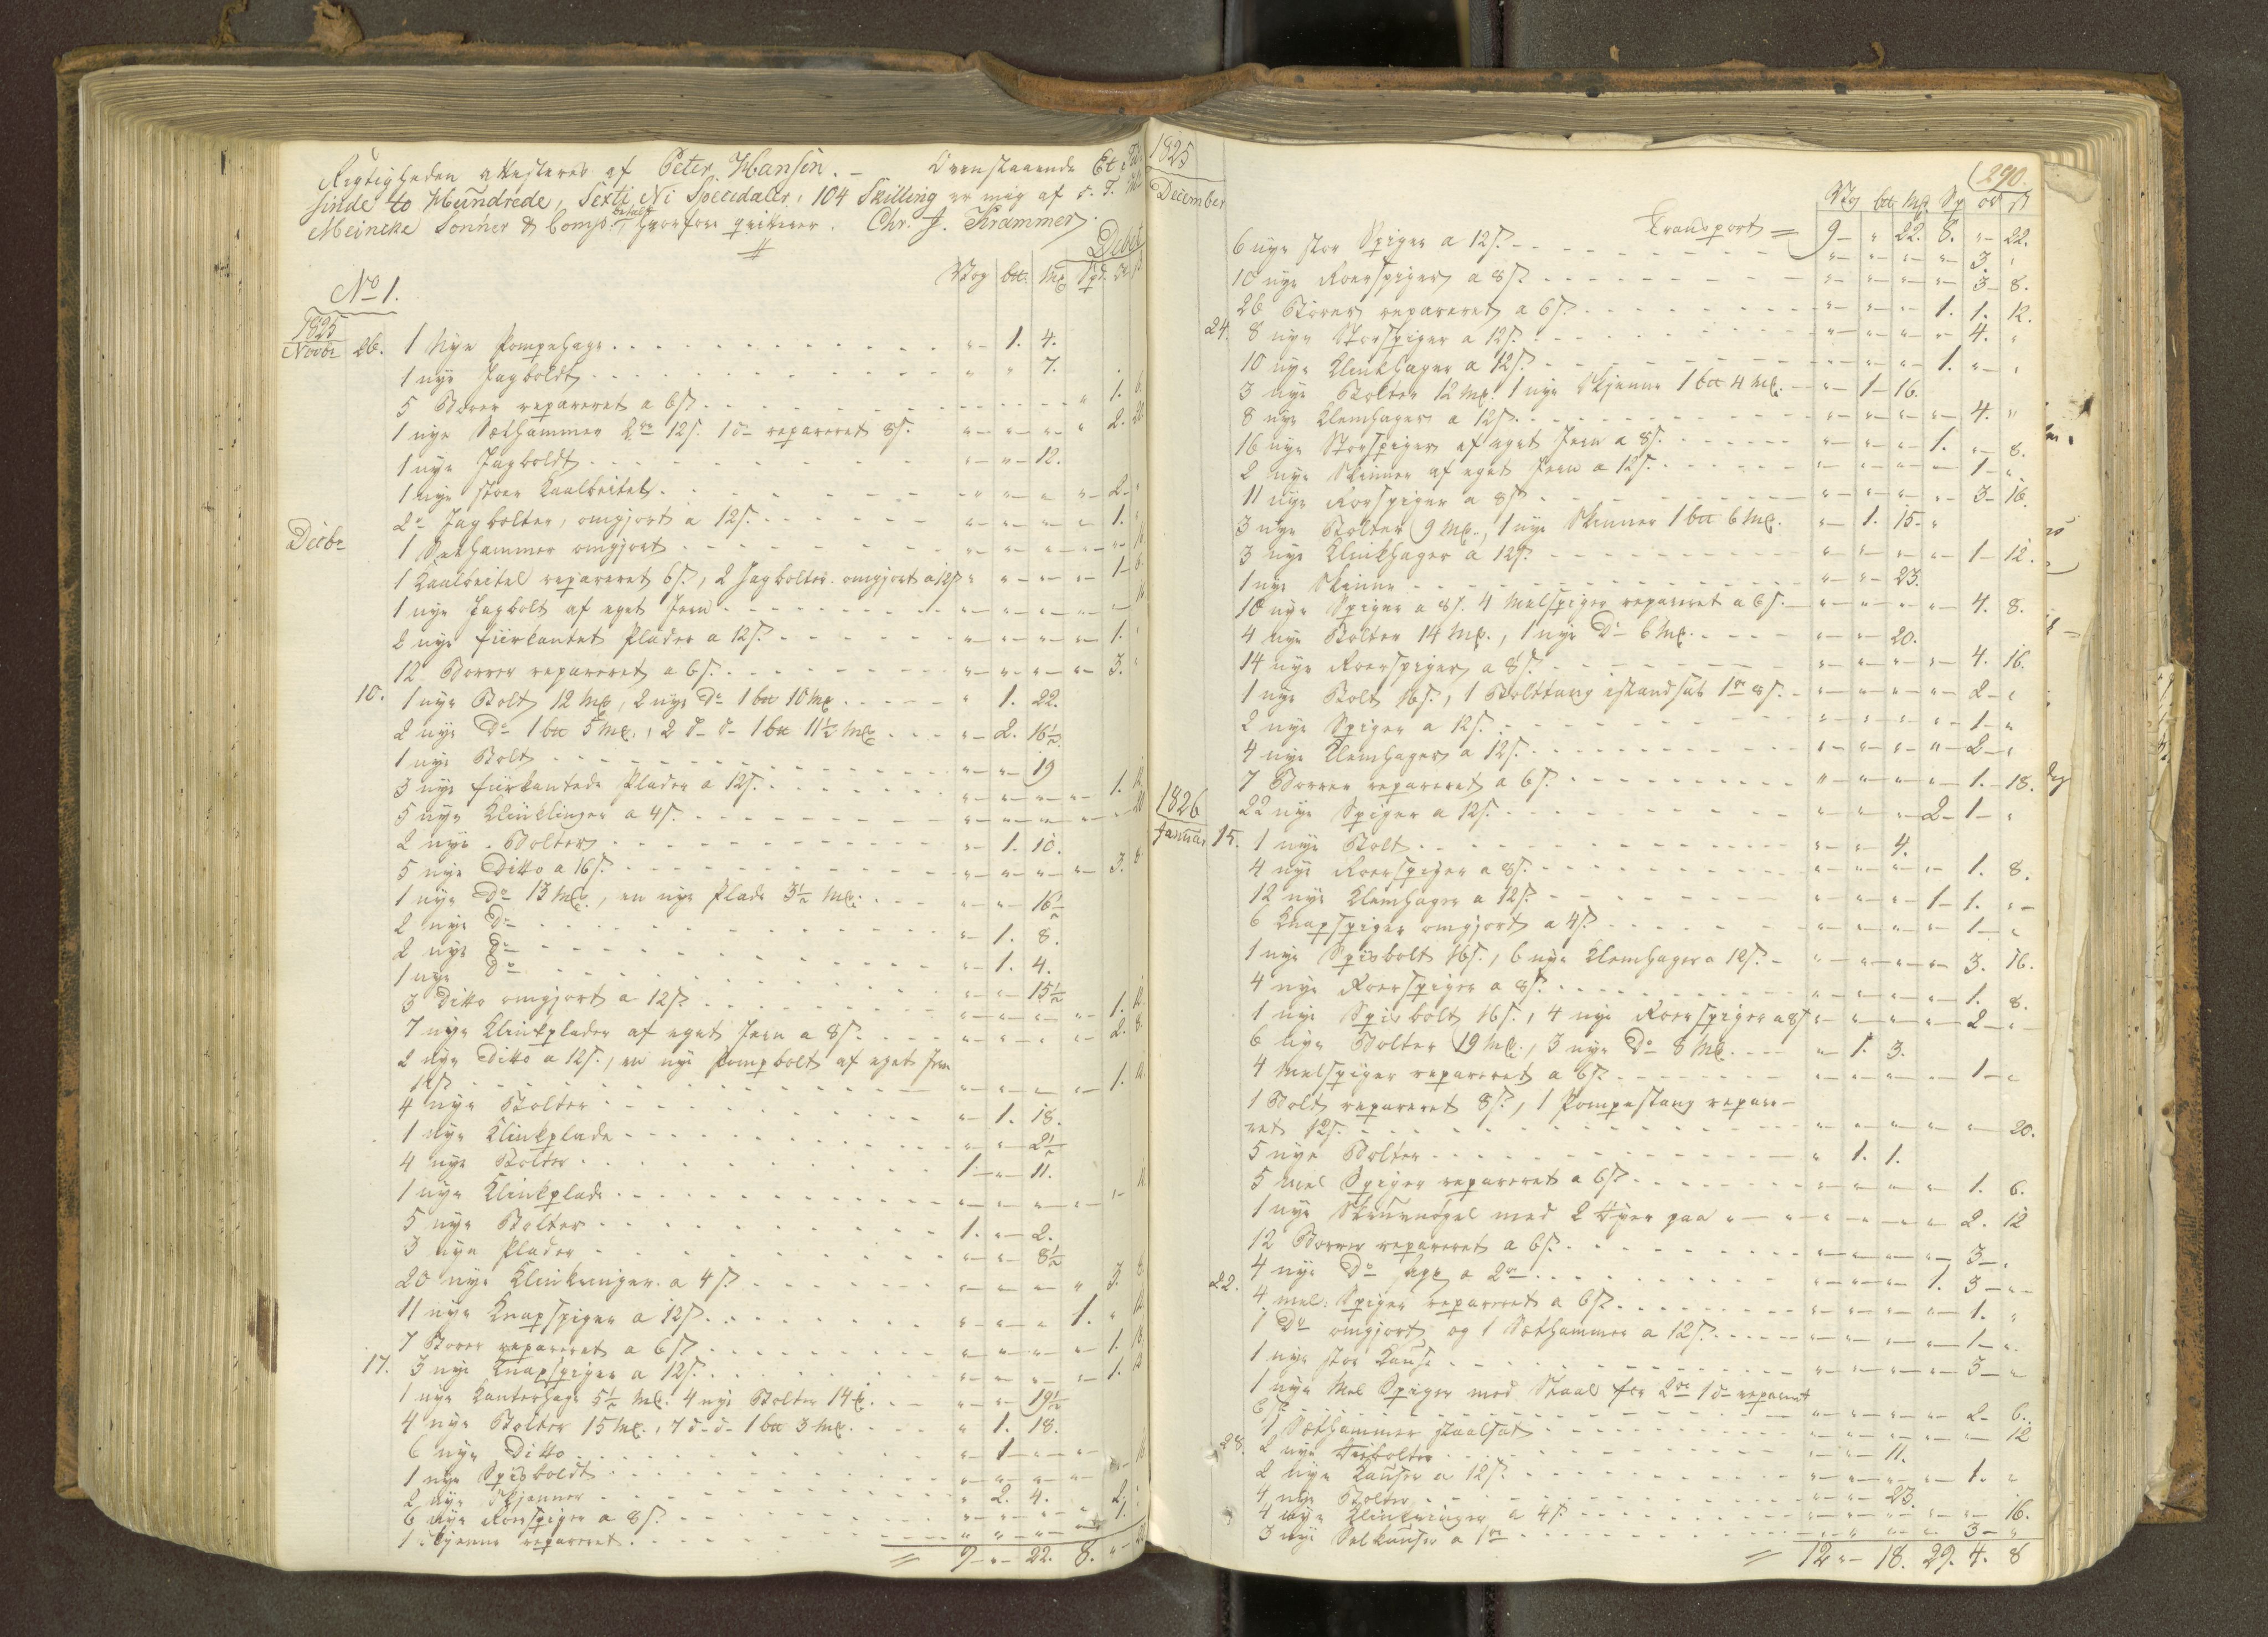 Rigtigheden attesteres af Peter Hansen. – Ovenstaaende Et
sinde to Hundrede, Sexti Ni Speciedaler, 104 Skilling er mig af
Meincke Sønner & Comp. betalt, hvorfore qvitterer. Chr. J. Krammer.
Debet
No 1.
Vog btt. Mk Spd. Ort ß
1825
Novbr 26. 1 Nye Pompehage 1. 4.
1 nye Jagboldt 7.
5 Borer repareret a 6ß 1. 6.
1 nye Sæthammer 2 Ort 12ß. 1 do repareret 8ß. 2. 20
1 nye Jagboldt 12.
1 nye stoer Kaalbeitel 2
2de Jagbolter, omgjort a 12ß. 1.
Decbr 1 Sæthammer omgjort
1 Kaalbeitel repareret 6ß, 2 Jagbolter omgjort a 12ß 1 6
1 nye Jagbolt af eget Jern
2 nye fiirkantet Plader a 12ß 1.
12 Borrer repareret a 6ß. 3.
10. 1 nye Bolt 12 Mk, 2 nye Do 1 btt 10 Mk 1. 22.
2 nye Do 1 btt 5 Mk., 2 d– d– 1 btt 11½ Mk 2. 16½
1 nye Bolt 19
3 nye fiirkantede Plader a 12ß. 1. 12
5 nye Klinklinger a 4ß. 20
2 nye Bolter 1. 10.
5 nye Ditto a 16ß. 3. 8
1 nye Do 13 Mk., en nye Plade 3½ Mk. 16½
2 nye Do 1. 8.
2 nye Do 1. 4.
1 nye Do 15½
3 Ditto omgjort a 12ß. 1. 12.
7 nye Klinkplader af eget Jern a 8ß. 2. 8.
2 nye Ditto a 12ß., en nye Pompbolt af eget Jern
12ß 1. 12
4 nye Bolter 1. 18.
1 nye Klinkplade 2½
4 nye Bolter 1. 11.
1 nye Klinkplade
5 nye Bolter 1. 2.
3 nye Plader 8½
20 nye Klinkringer a 4ß. 3. 8
11 nye Knapspiger a 12ß. 1. 12
7 Borer repareret a 6ß 1. 18
17. 3 nye Knapspiger a 12ß. 1. 12
1 nye Kanterhage 5½ Mk. 4 nye Bolter 14 Mk. 19½
4 nye Bolter 15 Mk., 7 d– d– 1 btt 3 Mk. 1. 18.
6 nye Ditto 1
1 nye Spisboldt 16
2 nye Skjenner 2. 4.
6 nye Roerspiger a 8ß. 2.
1 Skjenne repareret
= 9 22. 8.
290.
1825
December
Vog btt Mk Sp Ort ß
Transport = 9 22. 8. 22.
6 nye stor Spiger a 12ß. 3.
10 nye Roerspiger a 8ß. 3 8.
26 Borer repareret a 6ß. 1. 1. 12.
24. 8 nye Storspiger a 12ß. 4.
10 nye Klinkhager a 12ß. 1.
3 nye Bolter 12 Mk. 1 nye Skjenne 1 btt 4 Mk. 1 16.
8 nye Klemhager a 12ß. 4.
16 nye Storspiger af eget Jern a 8ß. 1. 8.
2 nye Skinner af eget Jern a 12ß. 1
11 nye Roerspiger a 8ß 3 16.
3 nye Bolter 9 Mk., 1 nye Skinner 1 btt 6 Mk. 1. 15
3 nye Klinkhager a 12ß. 1 12.
1 nye Skinne 23.
10 nye Spiger a 8ß. 4 Melspiger repareret a 6ß. 4. 8.
4 nye Bolter 14 Mk., 1 nye Do 6 Mk. 20.
14 nye Roerspiger a 8ß. 4. 16.
1 nye Bolt 16ß., 1 Bolttang istandsat 1 Ort 8ß. 2
2 nye Spiger a 12ß. 1
4 nye Klemhager a 12ß. 2
7 Borrer repareret a 6ß. 1. 18.
22 nye Spiger a 12ß. 2 1
1826
Januar 15. 1 nye Bolt 4.
4 nye Roerspiger a 8ß. 1. 8.
12 nye Klemhager a 12ß. 1 1.
6 Knapspiger omgjort a 4ß. 1
1 nye Spisbolt 16ß., 6 nye Klemhager a 12ß. 3. 16.
4 nye Roerspiger a 8ß. 1. 8.
1 nye Spisbolt 16ß., 4 nye Roerspiger a 8ß 2
6 nye Bolter 19 Mk., 3 nye Do 8 Mk. 1. 3.
4 Melspiger repareret a 6ß. 1
1 Bolt repareret 8ß., 1 Pompestang repare-
ret 12ß. 20.
5 nye Bolter 1. 1.
5 Mel Spiger repareret a 6ß. 1. 6.
1 nye Skruenøgel med 2 Øyer paa 2. 12
12 Borrer repareret a 6ß. 3
4 nye Do a 2 Ort 1. 3
22. 4 mel: Spiger repareret a 6ß. 1.
1 Do omgjort og 1 Sæthammer a 12ß. 1
1 nye stor Kause 3
1 nye Mel Spiger med Staal for 2 Ort 1 do reparert
6ß. 2 6.
1 Sæthammer staalsat 12
28. 2 nye bolter 11.
2 nye Kauser a 12ß. 1.
4 nye Bolter 23.
4 nye Klinkringer a 4ß. 16.
3 nye Selkauser a 1 Ort 3
= 12 18. 29. 4. 8